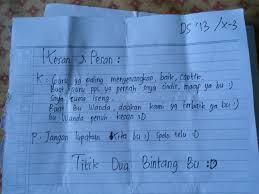 DS '13 /x-3
Kesan & Pesan :
K : Guru yg paling menyenangkan, baik, cantik.
Buat guru ppl yg pernah saya cinta, maaf ya bu :)
Saya cuma iseng.
Buat Bu Wanda doakan kami yg terbaik ya bu :)
Bu Wanda penuh kesan :D
P : Jangan lupakan kita bu :) Selo telu :D
Titik Dua Bintang Bu :D